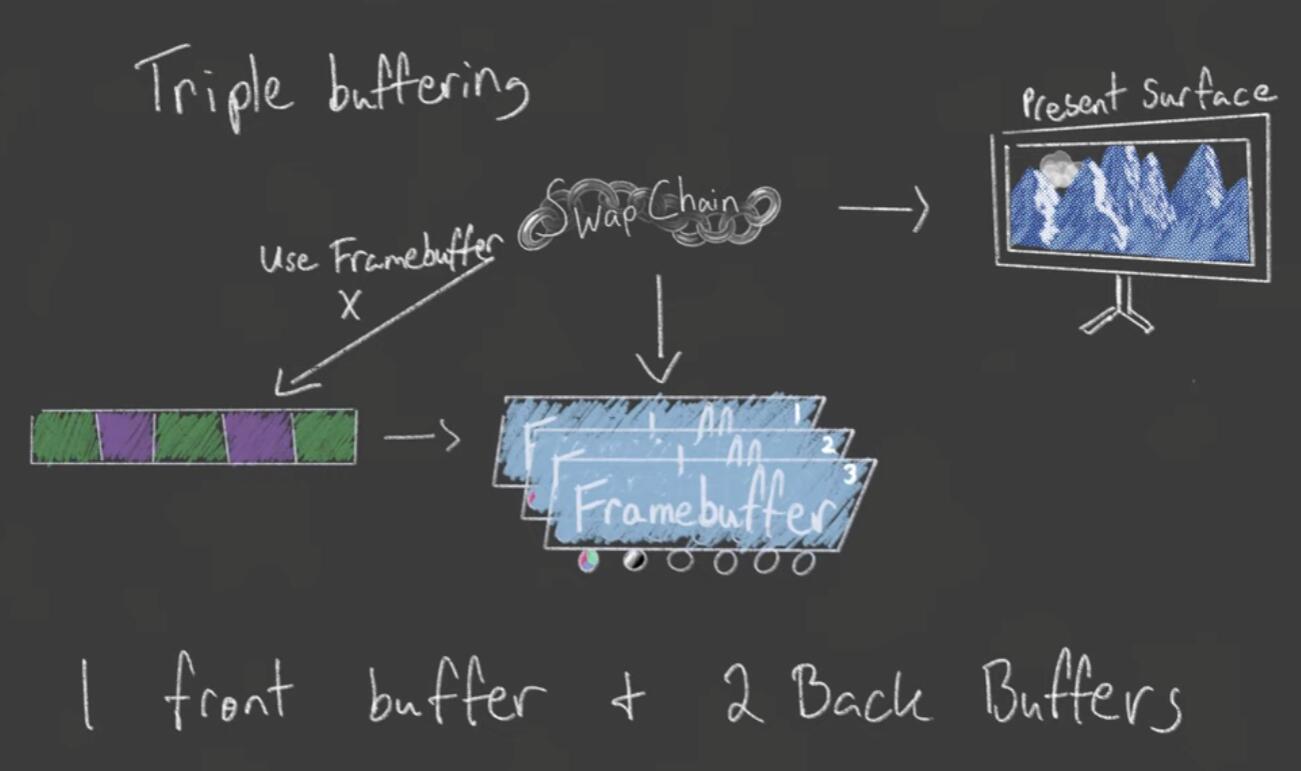 Triple buffering
Present Surface
Swap Chain
Use Framebuffer
X
1
2
3
Framebuffer
1 front buffer + 2 Back Buffers